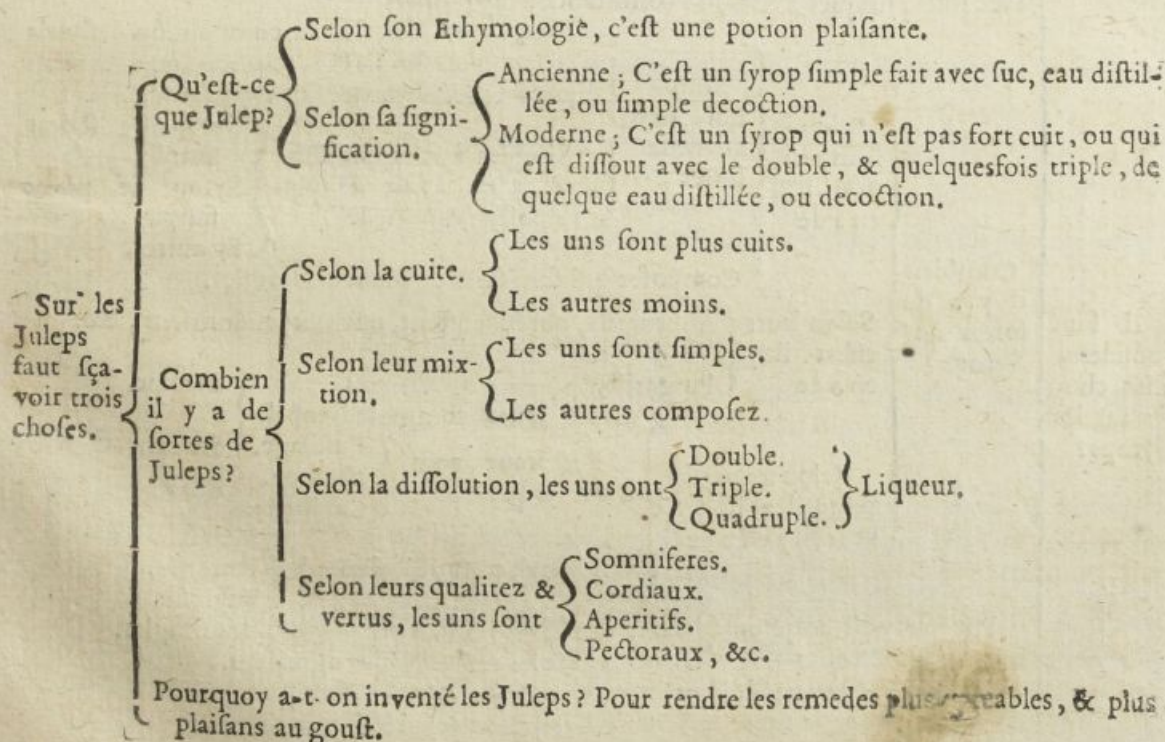 Sur les
Juleps
faut sça-
voir trois
choses.
Qu'est-ce
que Julep?
Selon son Ethymologie, c'est une potion plaisante.
Selon sa signi-
fication.
Ancienne ; C'est un syrop simple fait avec suc, eau distil-
lée, ou simple decoction.
Moderne ; C'est un syrop qui n'est pas fort cuit, ou qui
est dissout avec le double, & quelquesfois triple, de
quelque eau distillée, ou decoction.
Combien
il y a de
sortes de
Juleps?
Selon la cuite.
Les uns sont plus cuits.
Les autres moins.
Selon leur mix-
tion.
Les uns sont simples.
Les autres composez.
Selon la dissolution, les uns ont
Double.
Triple.
Quadruple.
Liqueur.
Selon leurs qualitez &
vertus, les uns sont
Somniferes.
Cordiaux.
Aperitifs.
Pectoraux, &c.
Pourquoy a-t-on inventé les Juleps? Pour rendre les remedes plus & plus
plaisans au goust.